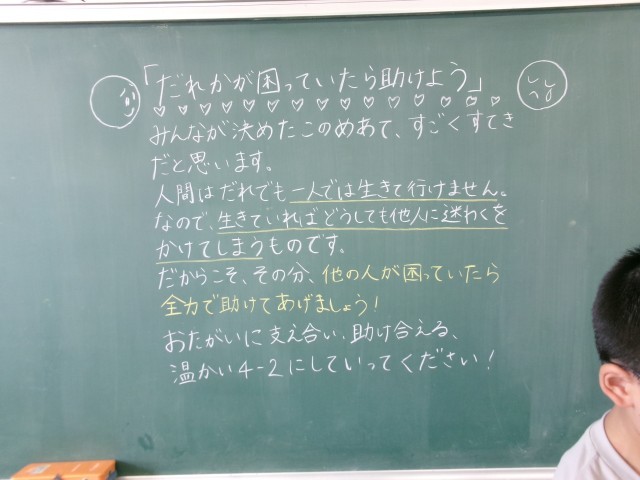 「だれかが困っていたら助けよう」
みんなが決めたこのめあて、すごくすてき
だと思います。
人間はだれでも一人では生きて行けません。
なので、生きていればどうしても他人に迷わくを
かけてしまうものです。
だからこそ、その分、他の人が困っていたら
全力で助けてあげましょう！
おたがいに支え合い、助け合える、
温かい4-2にしていってください！